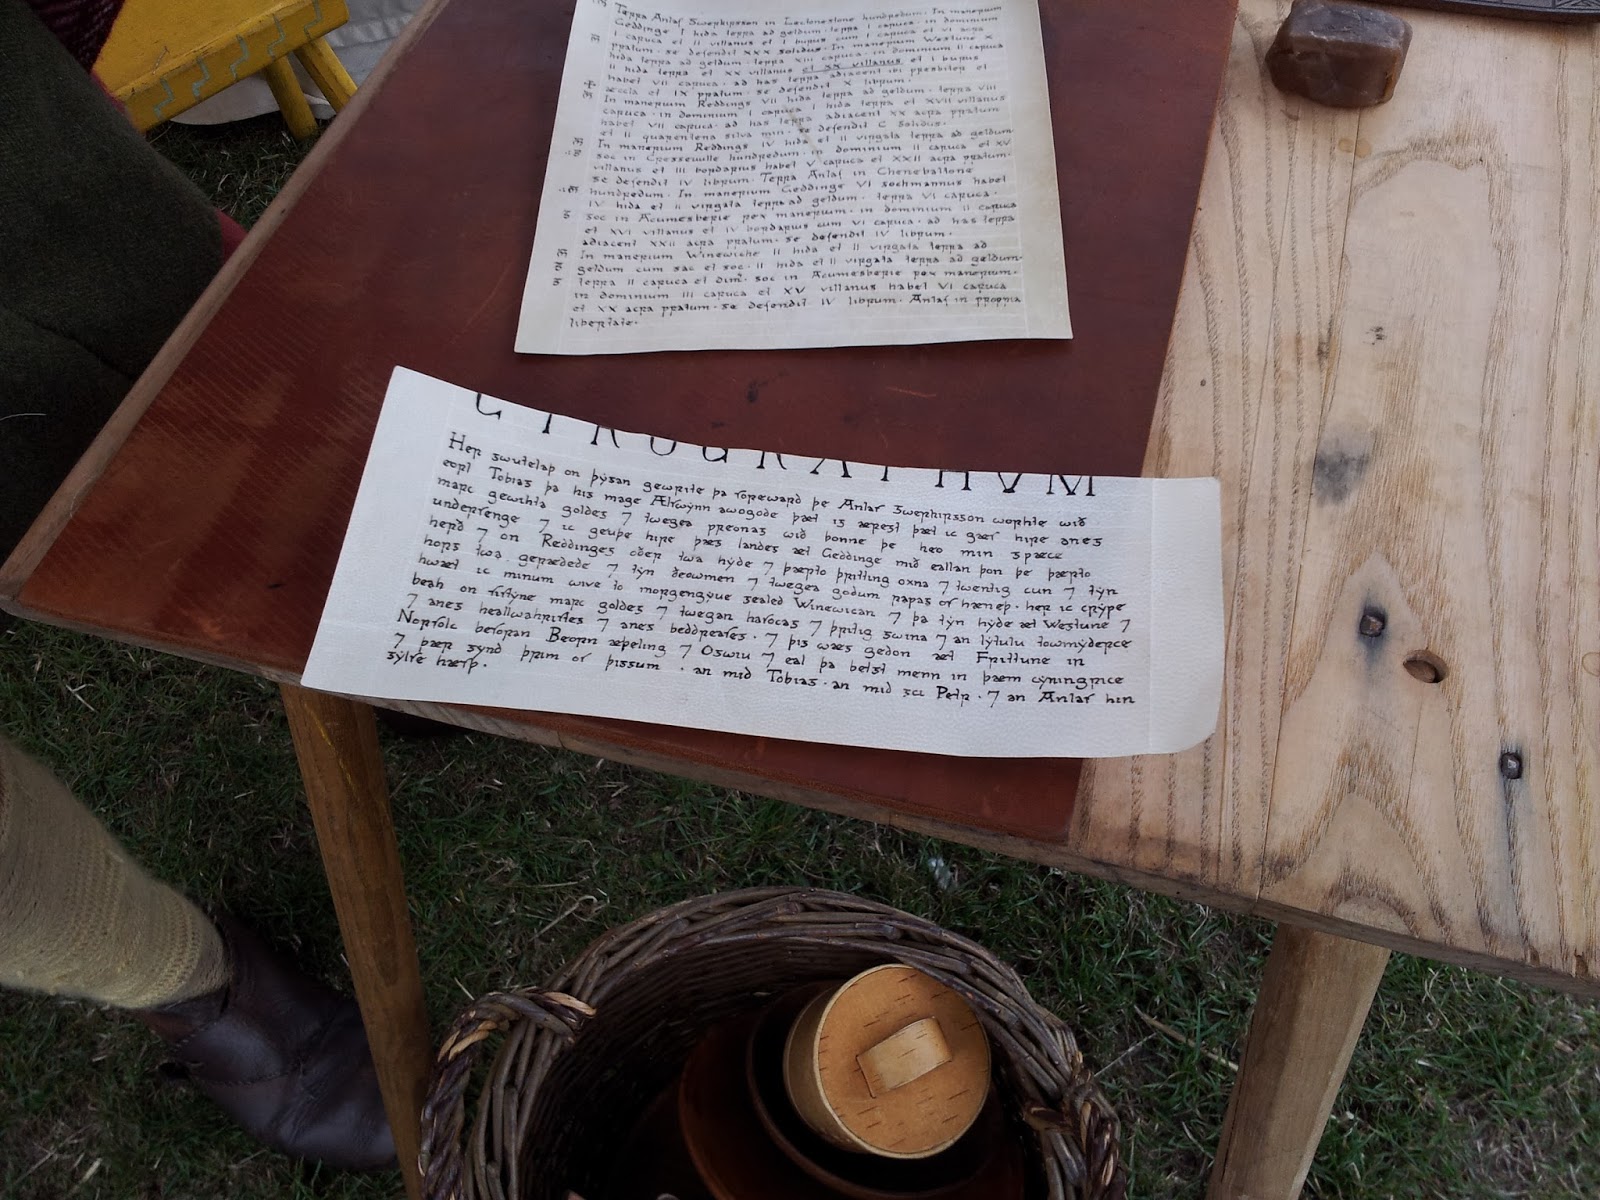 Terra Anlaf Swerkirsson in Lectonestone hundredum. In manerium
Geddinge I hida terra ad geldum. terra I caruca. in dominium
I caruca et II villanus et I burus cum I caruca et VI acra
pratum. se defendit XXX solidus. In manerium Westune X
hida terra ad geldum. terra XIII caruca. in dominium II caruca
II hida terra et XX villanus et SX villanus et I burus
habet VII caruca. ad has terra adiacent ibi presbiter et
æcclā et IX pratum. se defendit X librum.
In manerium Reddings VII hida terra ad geldum. terra VIII
caruca. in dominium I caruca I hida terra et XVII villanus
habet VII caruca. ad has terra adiacent XX acra pratum
et II quarentena silva min. se defendit C solidus.
In manerium Reddings IV hida et II virgata terra ad geldum
soc in Cressewlle hundredum. in dominium II caruca et XV
villanus et III bordarius habet V caruca et XXII acra pratum.
se defendit IV librum. Terra Anlaf in Chenebaltone
hundredum. In manerium Geddinge VI sochmannus habet
IV hida et II virgata terra ad geldum. terra VI caruca.
soc in Acumesberie rex manerium. in dominium II caruca
et XVI villanus et IV bordarius cum VI caruca. ad has terra
adiacent XXII acra pratum. se defendit IV librum.
In manerium Winewiche II hida et II virgata terra ad
geldum cum sac et soc. II hida et II virgata terra ad geldum.
terra II caruca et dim. soc in Acumesberie rex manerium.
in dominium III caruca et XV villanus habet VI caruca
et XX acra pratum. se defendit IV librum. Anlaf in propria
libertate.
CYROGRAPHVM
Her swutelaþ on þysan gewrite þa foreward þe Anlaf Swerkirsson worhte wið
eorl Tobias þa his mage Ælfwynn awogode þæt is ærest þæt ic gæf hire anes
marc gewihta goldes ⁊ twegea preonas wið bonne þe heo min spæce
underfenge ⁊ ic geuþe hire þæs landes æt Geddinge mid eallan þon þe þærto
herð ⁊ on Reddinges oðer twa hyde ⁊ þærto þritting oxna ⁊ twentig cun ⁊ tyn
hors twa gerædede ⁊ tyn ðeowmen ⁊ twegea godum rapas of hænep. her ic cryþe
hwæt ic minum wive to morgengyve sealed Winewican ⁊ þa tyn hyde æt Westune ⁊
beah on fiftyne marc goldes ⁊ twegan hafocas ⁊ þritig swina ⁊ an lytulu towmyderce
⁊ anes heallwahriftes ⁊ anes beddreafes. ⁊ þis wæs gedon æt Frittune in
Norfolc beforan Beorn æþeling ⁊ Oswiu ⁊ eal þa betst menn in þæm cyningrice
⁊ þær synd þrim of þissum. an mid Tobias. an mid sci Petr. ⁊ an Anlaf hin
sylfe hæfþ.